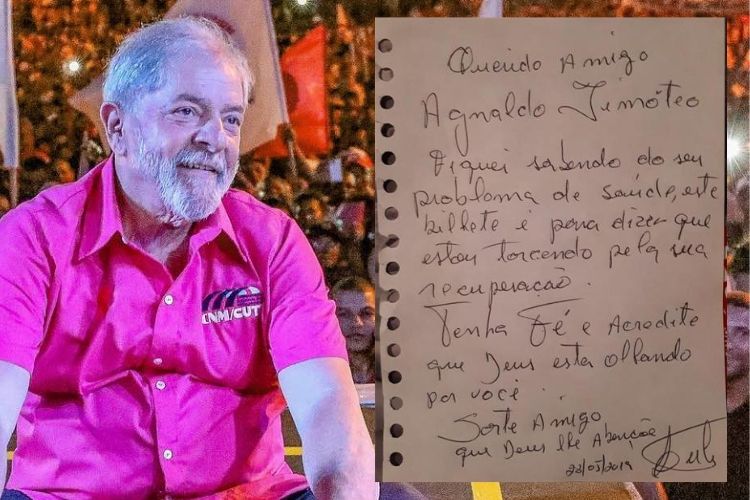 CNM/CUT
Querido Amigo
Agnaldo Timóteo
Fiquei sabendo do seu
problema de saúde, este
bilhete é para dizer que
estou torcendo pela sua
recuperação.
Tenha Fé e Acredite
que Deus esta olhando
por você.
Sorte Amigo
que Deus lhe Abençõe
28/05/2019